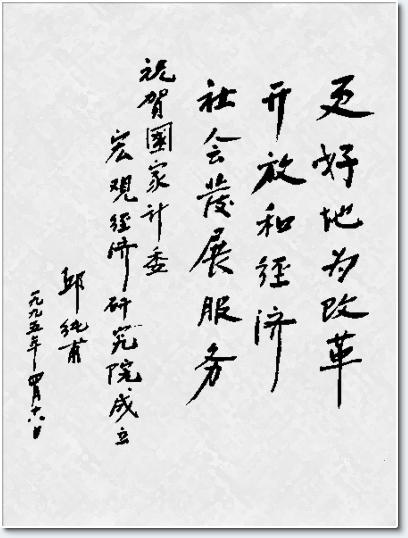 更好地为改革
开放和经济
社会发展服务
祝贺國家计委
宏观经济研究院成立
邱纯甫
一九九五年四月十八日